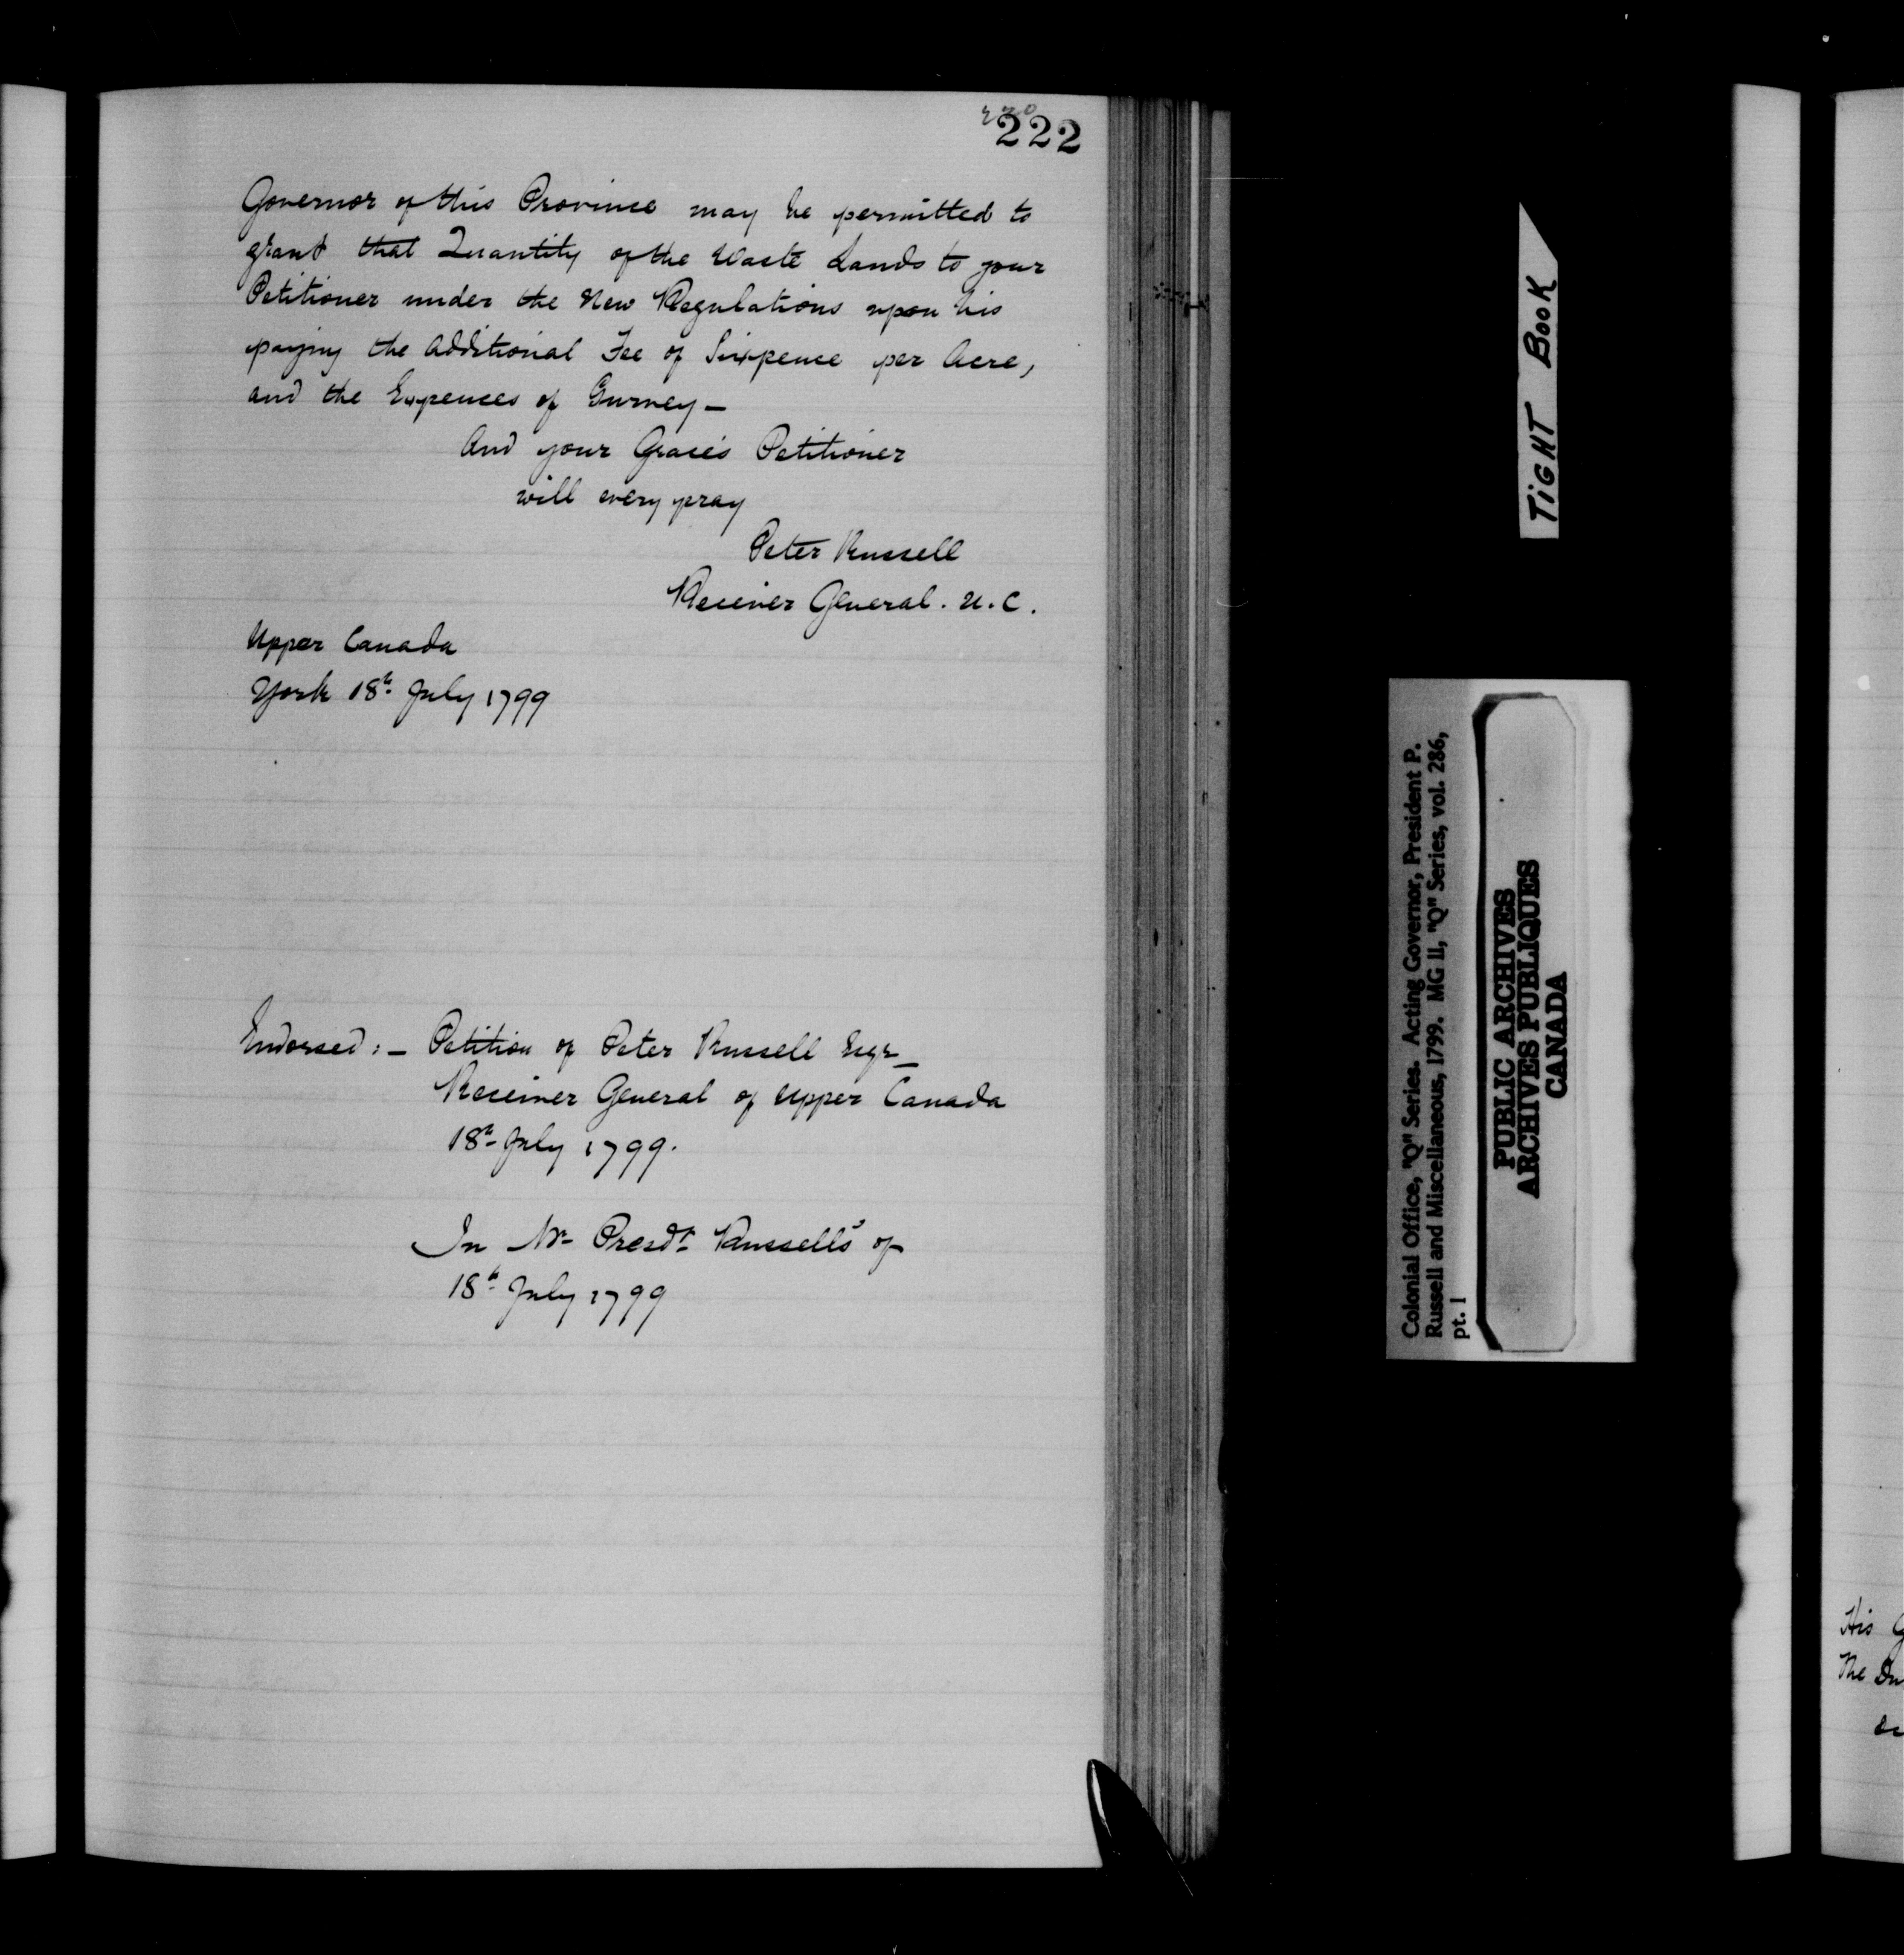 222
Governor of this Province may be permitted to
grant that Quantity of the Waste Lands to your
Petitioner under the New Regulations upon his
paying the additional Fee of Sixpence per Acre,
and the Expences of Survey —
And your Grace's Petitioner
will every pray
Peter Russell
Receiver General. U.C.
Upper Canada
York 18th July 1799
Endorsed: — Petition of Peter Russell Esqr
Receiver General of Upper Canada
18th July 1799.
In Mr Presdt Russell's of
18th July 1799
TIGHT BOOK
Colonial Office, "Q" Series. Acting Governor, President P.
Russell and Miscellaneous, 1799. MG 11, "Q" Series, vol. 286,
pt. 1
PUBLIC ARCHIVES
ARCHIVES PUBLIQUES
CANADA
His
The